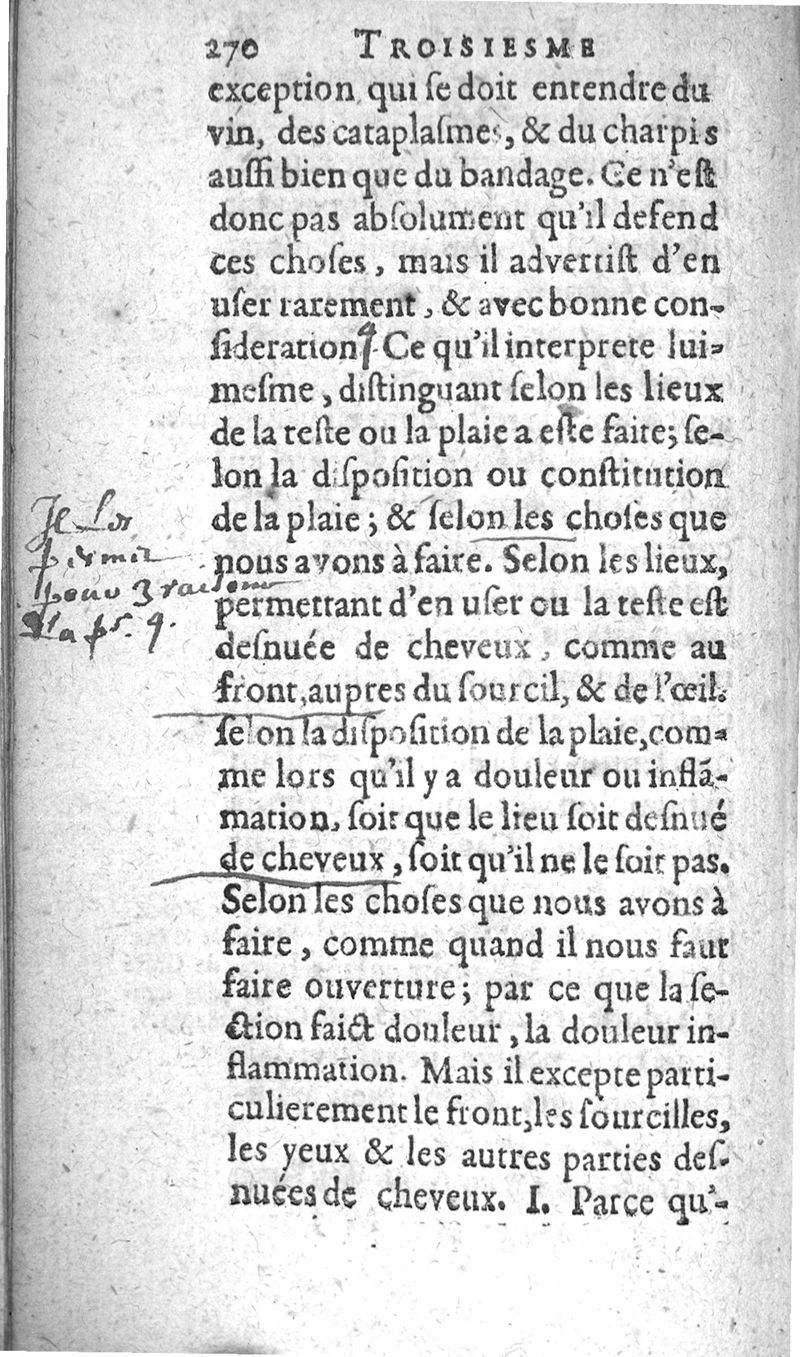 270 TROISIESME
exception qui ſe doit entendre du
vin, des cataplaſmes, & du charpis
auſſi bien que du bandage. Ce n'eſt
donc pas abſolument qu'il defend
ces choſes, mais il advertiſt d'en
uſer rarement, & avec bonne con-
ſideration. Ce qu'il interprete lui-
meſme, diſtinguant ſelon les lieux
de la teſte ou la plaie a eſte faite; ſe-
lon la diſpoſition ou conſtitution
de la plaie; & ſelon les choſes que
nous avons à faire. Selon les lieux,
permettant d'en uſer ou la teſte eſt
deſnuée de cheveux, comme au
front, aupres du ſourcil, & de l'œil.
ſelon la diſpoſition de la plaie, com-
me lors qu'il y a douleur ou inflã-
mation, ſoit que le lieu ſoit deſnué
de cheveux, ſoit qu'il ne le ſoit pas.
Selon les choſes que nous avons à
faire, comme quand il nous faut
faire ouverture; par ce que la ſe-
ction faict douleur, la douleur in-
flammation. Mais il excepte parti-
culierement le front, les ſourcilles,
les yeux & les autres parties deſ-
nuées de cheveux. I. Parce qu'-
permit
pour 3 raisons